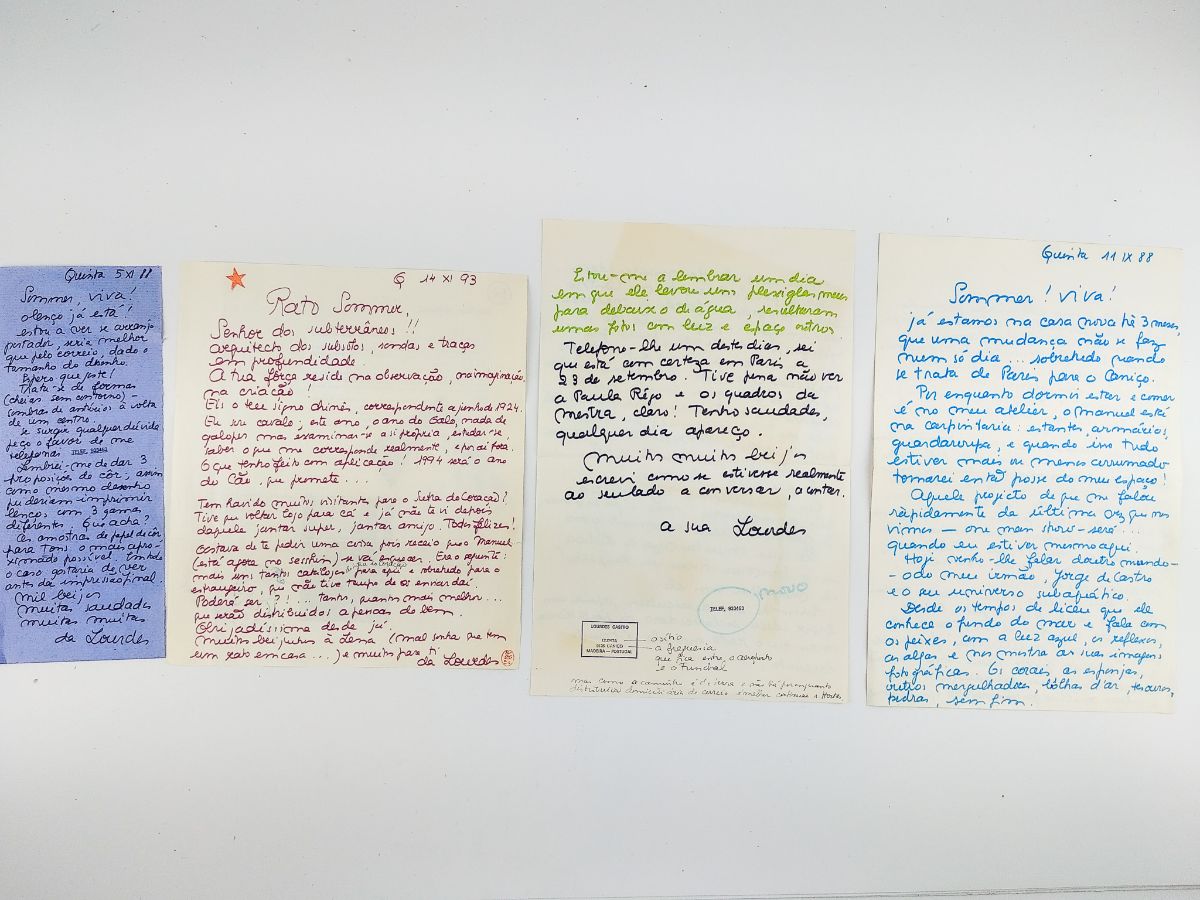 Quinta 5 XI 88
Sommer, viva!
o lenço já está!
estou a ver se arranjo
portador, seria melhor
que pelo correio, dado o
tamanho do desenho.
Espero que goste!
Trata-se de formas
(cheias sem contorno) –
sombras de antúrios à volta
de um centro.
Se surgir qualquer dúvida
peço o favor de me
telefonar TELEF. 933463
Lembrei-me de dar 3
proposições de côr; assim
como mesmo desenho
poderiam imprimir
lenços com 3 gamas
diferentes. Que acha?
As amostras de papel de côr
para tons o mais apro-
ximado possível. Em todo
o caso gostaria de ver
antes da impressão final.
mil beijos
muitas saudades
muitas muitas
da Lourdes
Q 14 XI 93
Rato Sommer,
Senhor dos subterrâneos!!
arquitecto dos subsolos, sondas e traças
em profundidade.
A tua força reside na observação, na imaginação,
na criação!
Eis o teu signo chinês, correspondente a junho de 1924.
Eu sou cavalo; este ano, o ano do Galo, nada de
galopes mas examinar-se a si própria, estudar-se
saber o que me corresponde realmente, e por aí fora.
O que tenho feito com aplicação! 1994 será o ano
do Cão, que promete...
Tem havido muitos visitantes para o Sutra do Coração?
Tive que voltar logo para cá e já não te vi depois
daquele jantar super, jantar amigo. Todos felizes!
Gostava de te pedir uma coisa pois receio que o Manuel
(está agora no sesshin) se vá esquecer. Era o seguinte:
mais uns tantos catálogos para aqui e sobretudo para o
estrangeiro, que não tive tempo de os enviar daí.
Poderá ser?!... tantos, quantos mais melhor...
que serão distribuidos a pessoas de bem.
Obrigadíssima desde já.
muitos beijinhos à Lena (mal sonha que tem
um rato em casa...) e muitos para ti
da Lourdes
Estou-me a lembrar um dia
em que ele levou uns plexiglas meus
para debaixo de água, resultaram
umas fotos com luz e espaço outros
Telefono-lhe um destes dias, sei
que está com certeza em Paris a
23 de setembro. Tive pena não ver
a Paula Rêgo e os quadros da
mestra, claro! Tenho saudades,
qualquer dia apareço.
Muitos muitos beijos
escrevi como se estivesse realmente
ao seu lado a conversar, a contar.
a sua Lourdes
novo
TELEF. 933463
LOURDES CASTRO
QUINTA
9125 CANIÇO
MADEIRA – PORTUGAL
o sítio
a freguesia
que fica entre o aeroporto
e o Funchal
mas como o caminho é de terra e não há por enquanto
Quinta 11 IX 88
Sommer! Viva!
já estamos na casa nova há 3 meses,
que uma mudança não se faz
num só dia... sobretudo quando
se trata de Paris para o Caniço.
Por enquanto dormir estar e comer
é no meu atelier, o Manuel está
na carpintaria: estantes, armários,
guarda roupa, e quando isso tudo
estiver mais ou menos arrumado
tomarei então posse do meu espaço!
Aquele projecto de que me falou
ràpidamente da última vez que nos
vimos – one man show – será...
quando eu estiver mesmo aqui.
Hoje venho-lhe falar doutro mundo –
– o do meu irmão, Jorge de Castro
e o seu universo subaquático.
Desde os tempos de liceu que ele
conhece o fundo do mar e fala com
os peixes, com a luz azul, os reflexos,
as algas e nos mostra as suas imagens
fotográficas. Os corais, as esponjas,
outros mergulhadores, bôlhas d'ar, tesouros,
pedras, sem fim.